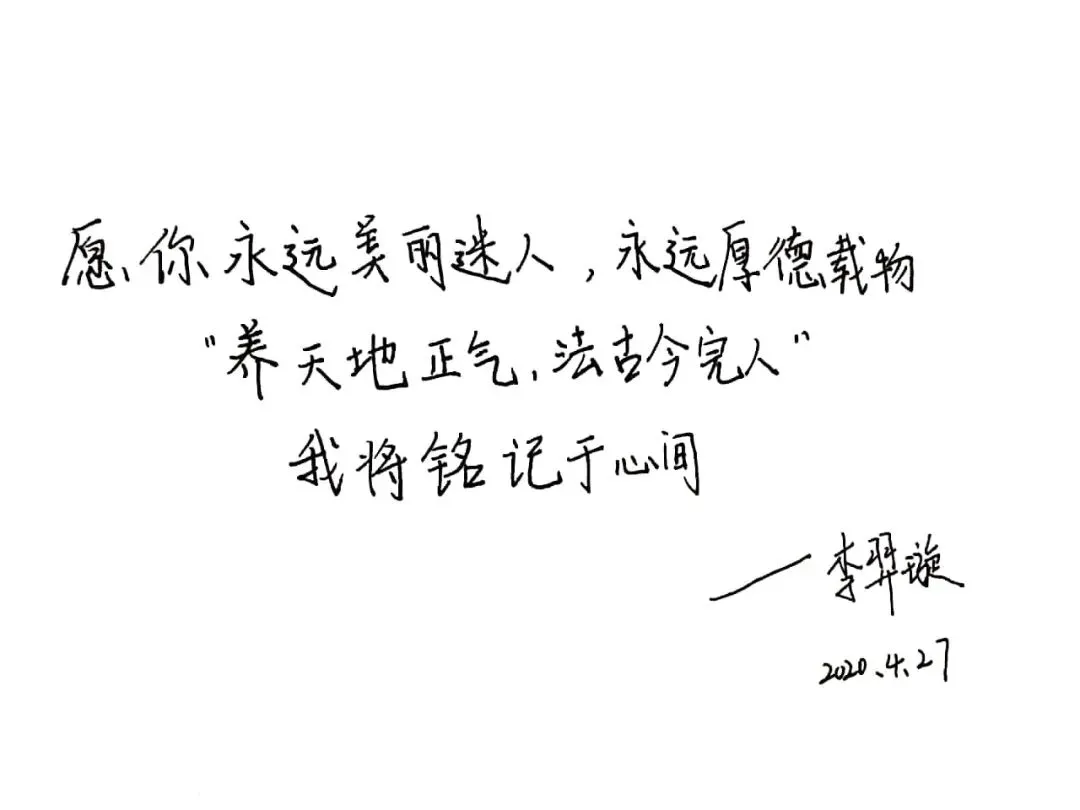 愿你永远美丽迷人，永远厚德载物
"养天地正气，法古今完人"
我将铭记于心间
——李羿璇
2020.4.27